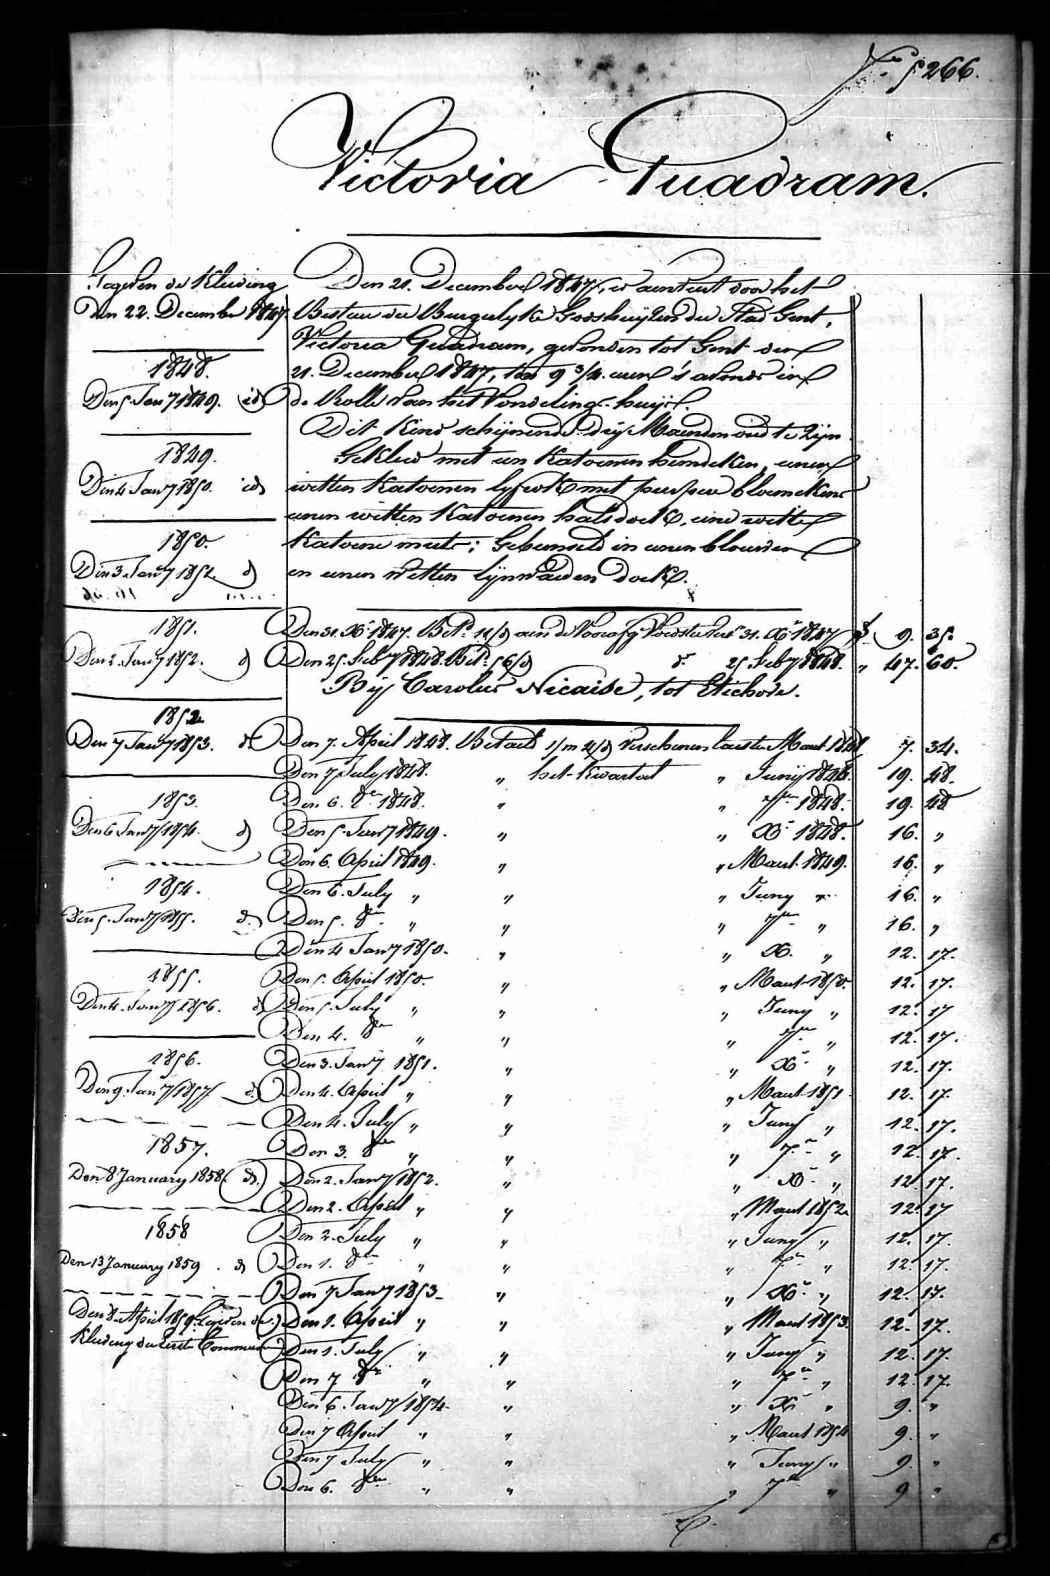 N.º 5266.
Victoria Quadram.
Gegeven de Kleeding
Den 22. December 1847.
1848.
Den 5. Jan.y 1849. id
1849.
Den 4. Jan.y 1850. id
1850.
Den 3. Jan.y 1851. d
1851.
Den 2. Jan.y 1852. d
1852
Den 7 Jan.y 1853. d
1853.
Den 6 Jan.y 1854. d
1854.
Den 5. Jan.y 1855. d.
1855.
Den 4. Jan.y 1856. d
1856.
Den 9. Jan.y 1857. d
1857.
Den 8 January 1858. d.
1858
Den 13 January 1859. d
Den 8 April 1859. Gegeven de
Kleeding der Eerste Commun
Den 21. December 1847, is aenveert door het
Bestuer der Burgerlyke Godshuyzen der Stad Gent,
Victoria Quadram, gevonden tot Gent den
21. December 1847, ten 9 3/4. uren 's avonds in
de Rolle van het Vondeling-huys.
Dit Kind schynende dry Maenden oud te zyn
Gekleed met een Katoenen hemdeken, eenen
witten Katoenen lyfrok met purper bloemekens
eenen witten Katoenen halsdoek, eene witte
Katoene muts; Gebunseld in eenen blauwen
en eenen witten lynwaeden doek.
Den 31. X.r 1847. Bet.d 11/d aen de Voorafg. Voedster tot 31. X.r 1847 f 9. 35.
Den 25 Feb.y 1848. Bet.d 56/d d.o 25 Feb.y 1848. " 47. 60.
Bij Carolus Nicaise, tot Etichove.
Den 7. April 1848. Betaelt 1/m 4/d Verschenen laesten Maert 1848 7. 34.
Den 7 July 1848. " het kwartael " Juny 1848. 19. 48.
Den 6. 8.er 1848. " " 7.er 1848. 19. 48
Den 5 Jan.y 1849. " " X.r 1848. 16. "
Den 6. April 1849. " " Maert 1849. 16. "
Den 6. July " " " Juny " 16. "
Den 5. 8.er " " " 7.er " 16. "
Den 4 Jan.y 1850. " " X. " 12. 17.
Den 5. April 1850. " " Maert 1850. 12. 17.
Den 5. July " " " Juny " 12. 17
Den 4. 8.er " " " 7.er " 12. 17.
Den 3. Jan.y 1851. " " X.r " 12. 17.
Den 4. April " " " Maert 1851 12. 17.
Den 4. July " " " Juny " 12. 17.
Den 3. 8.er " " " 7.er " 12. 17.
Den 2. Jan.y 1852. " " X.r " 12. 17.
Den 2. April " " " Maert 1852. 12. 17
Den 2. July " " " Juny " 12. 17.
Den 1. 8.er " " " 7.er " 12. 17.
Den 7 Jan.y 1853. " " X.r " 12. 17.
Den 1. April " " " Maert 1853. 12. 17.
Den 1. July " " " Juny " 12. 17.
Den 7 8.er " " " 7.er " 12. 17.
Den 6. Jan.y 1854. " " X.r " 9. "
Den 7 April " " " Maert 1854 9. "
Den 7 July " " " Juny " 9. "
Den 6. 8.er " " " 7.er " 9 "